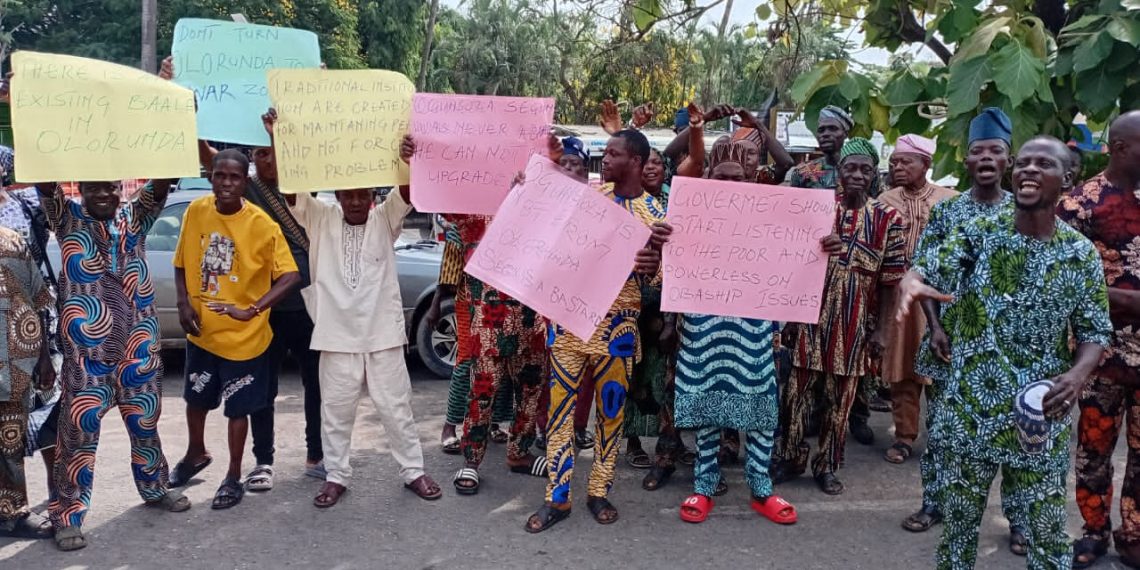 THERE IS
EXISTING BAALE
IN
OLORUNDA
DOMI TURN
OLORUNDA TO
WAR ZO
TRADITIONAL INSTI
ION ARE CREATED
FOR MAINTANING PE
AND NOT FOR C
PROBLEM
OGUNSOLA SEGUN
WAS NEVER A BA
HE CAN NOT B
UPGRADE
OGUNSOLA IS
NOT FROM
OLORUNDA
SEGUN IS A BASTARD
GOVERMET SHOULD
START LISTENING
TO THE POOR AND
POWERLESS ON
OBASHIP ISSUES